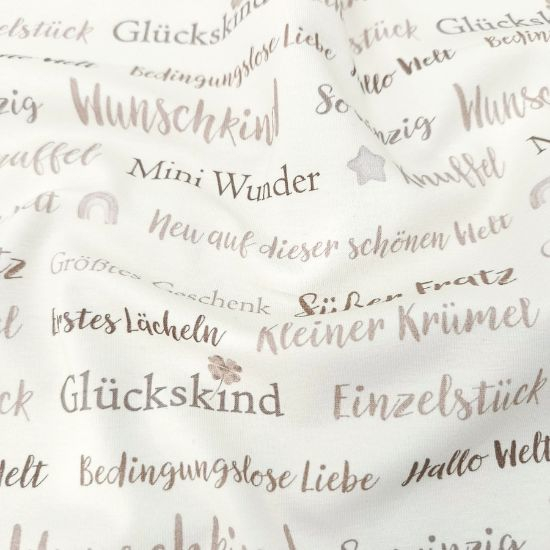 elstück Glückskind stück Glücksk
Bedingungslose Liebe Hallo Welt Bedin
zig Wunschkind So nzig Wunsc
nuffel Mini Wunder Knuffel
Neu auf dieser schönen Welt
tz Größtes Geschenk Süßer Fratz
el Erstes Lächeln Kleiner Krümel
ck Glückskind Einzelstück
Welt Bedingungslose Liebe Hallo Welt